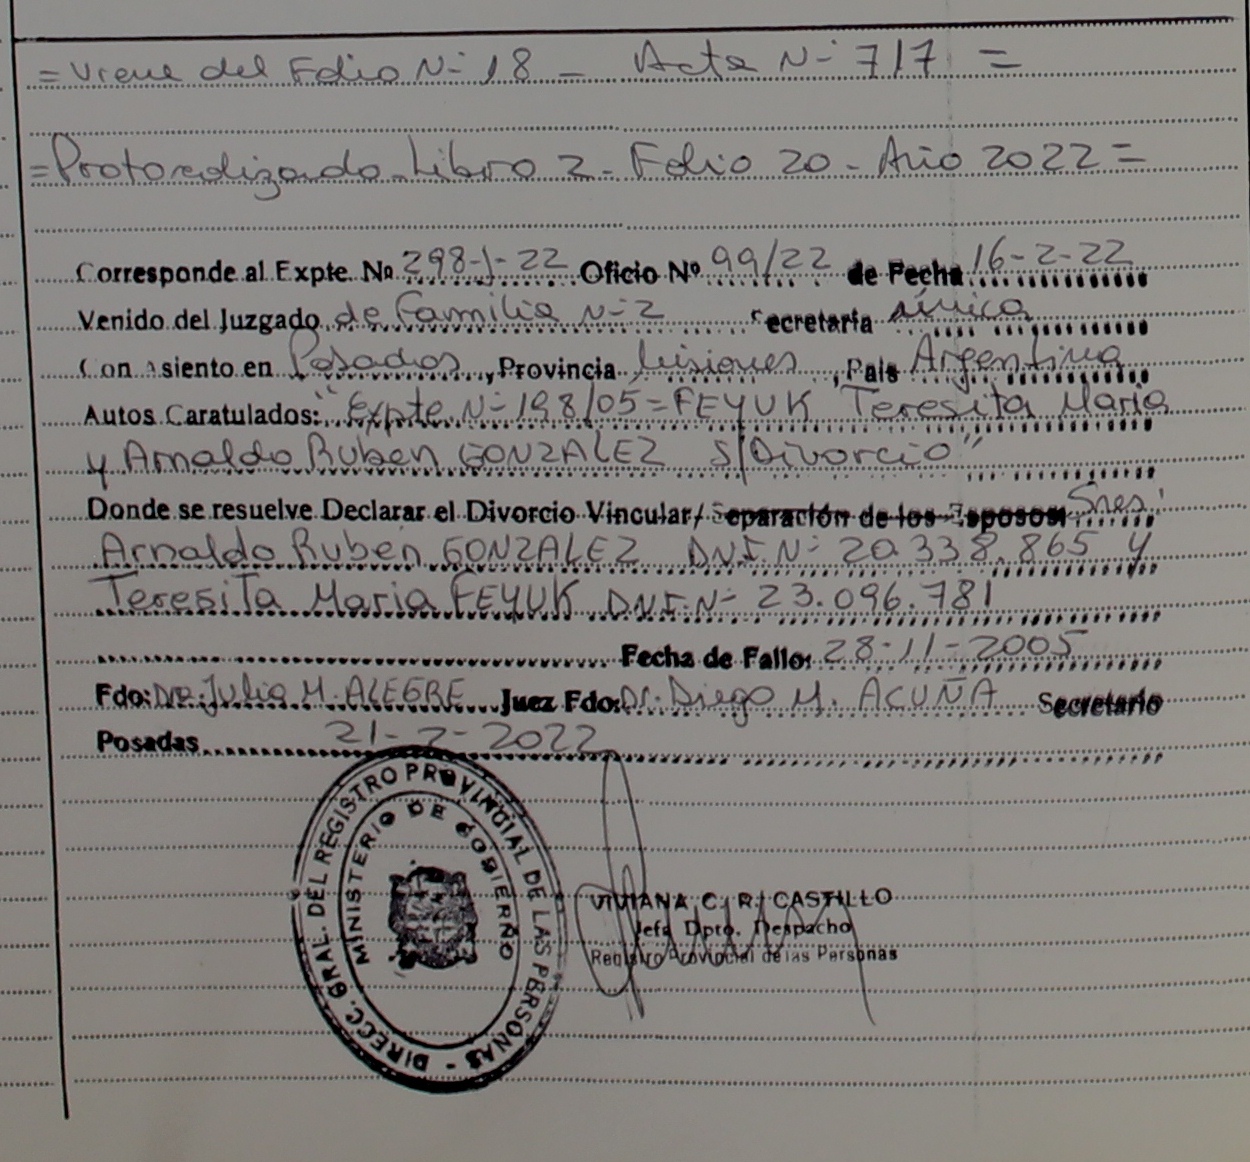 = Viene del Folio Nº 18 - Acta Nº 717 =
= Protocolizado Libro 2 - Folio 20 - Año 2022 =
Corresponde al Expte. Nº 298-J-22 Oficio Nº 99/22 de Fecha 16-2-22
Venido del Juzgado de Familia Nº 2 Secretaría única
Con Asiento en Posadas, Provincia Misiones, País Argentina
Autos Caratulados: "Expte. Nº 198/05 = FEYUK Teresita Maria
y Arnaldo Ruben GONZALEZ S/Divorcio"
Donde se resuelve Declarar el Divorcio Vincular/ Separación de los Esposos: Sres:
Arnaldo Ruben GONZALEZ D.N.I. Nº 20.338.865 y
Teresita Maria FEYUK D.N.I. Nº 23.096.781
Fecha de Fallo: 28-11-2005
Fdo: Julia M. ALEGRE Juez Fdo: Dr. Diego M. ACUÑA Secretario
Posadas 21-2-2022
DIRECC. GRAL. DEL REGISTRO PROVINCIAL DE LAS PERSONAS -
MINISTERIO DE GOBIERNO
VIVIANA C. R. CASTILLO
Jefa Dpto. Despacho
Registro Provincial de las Personas